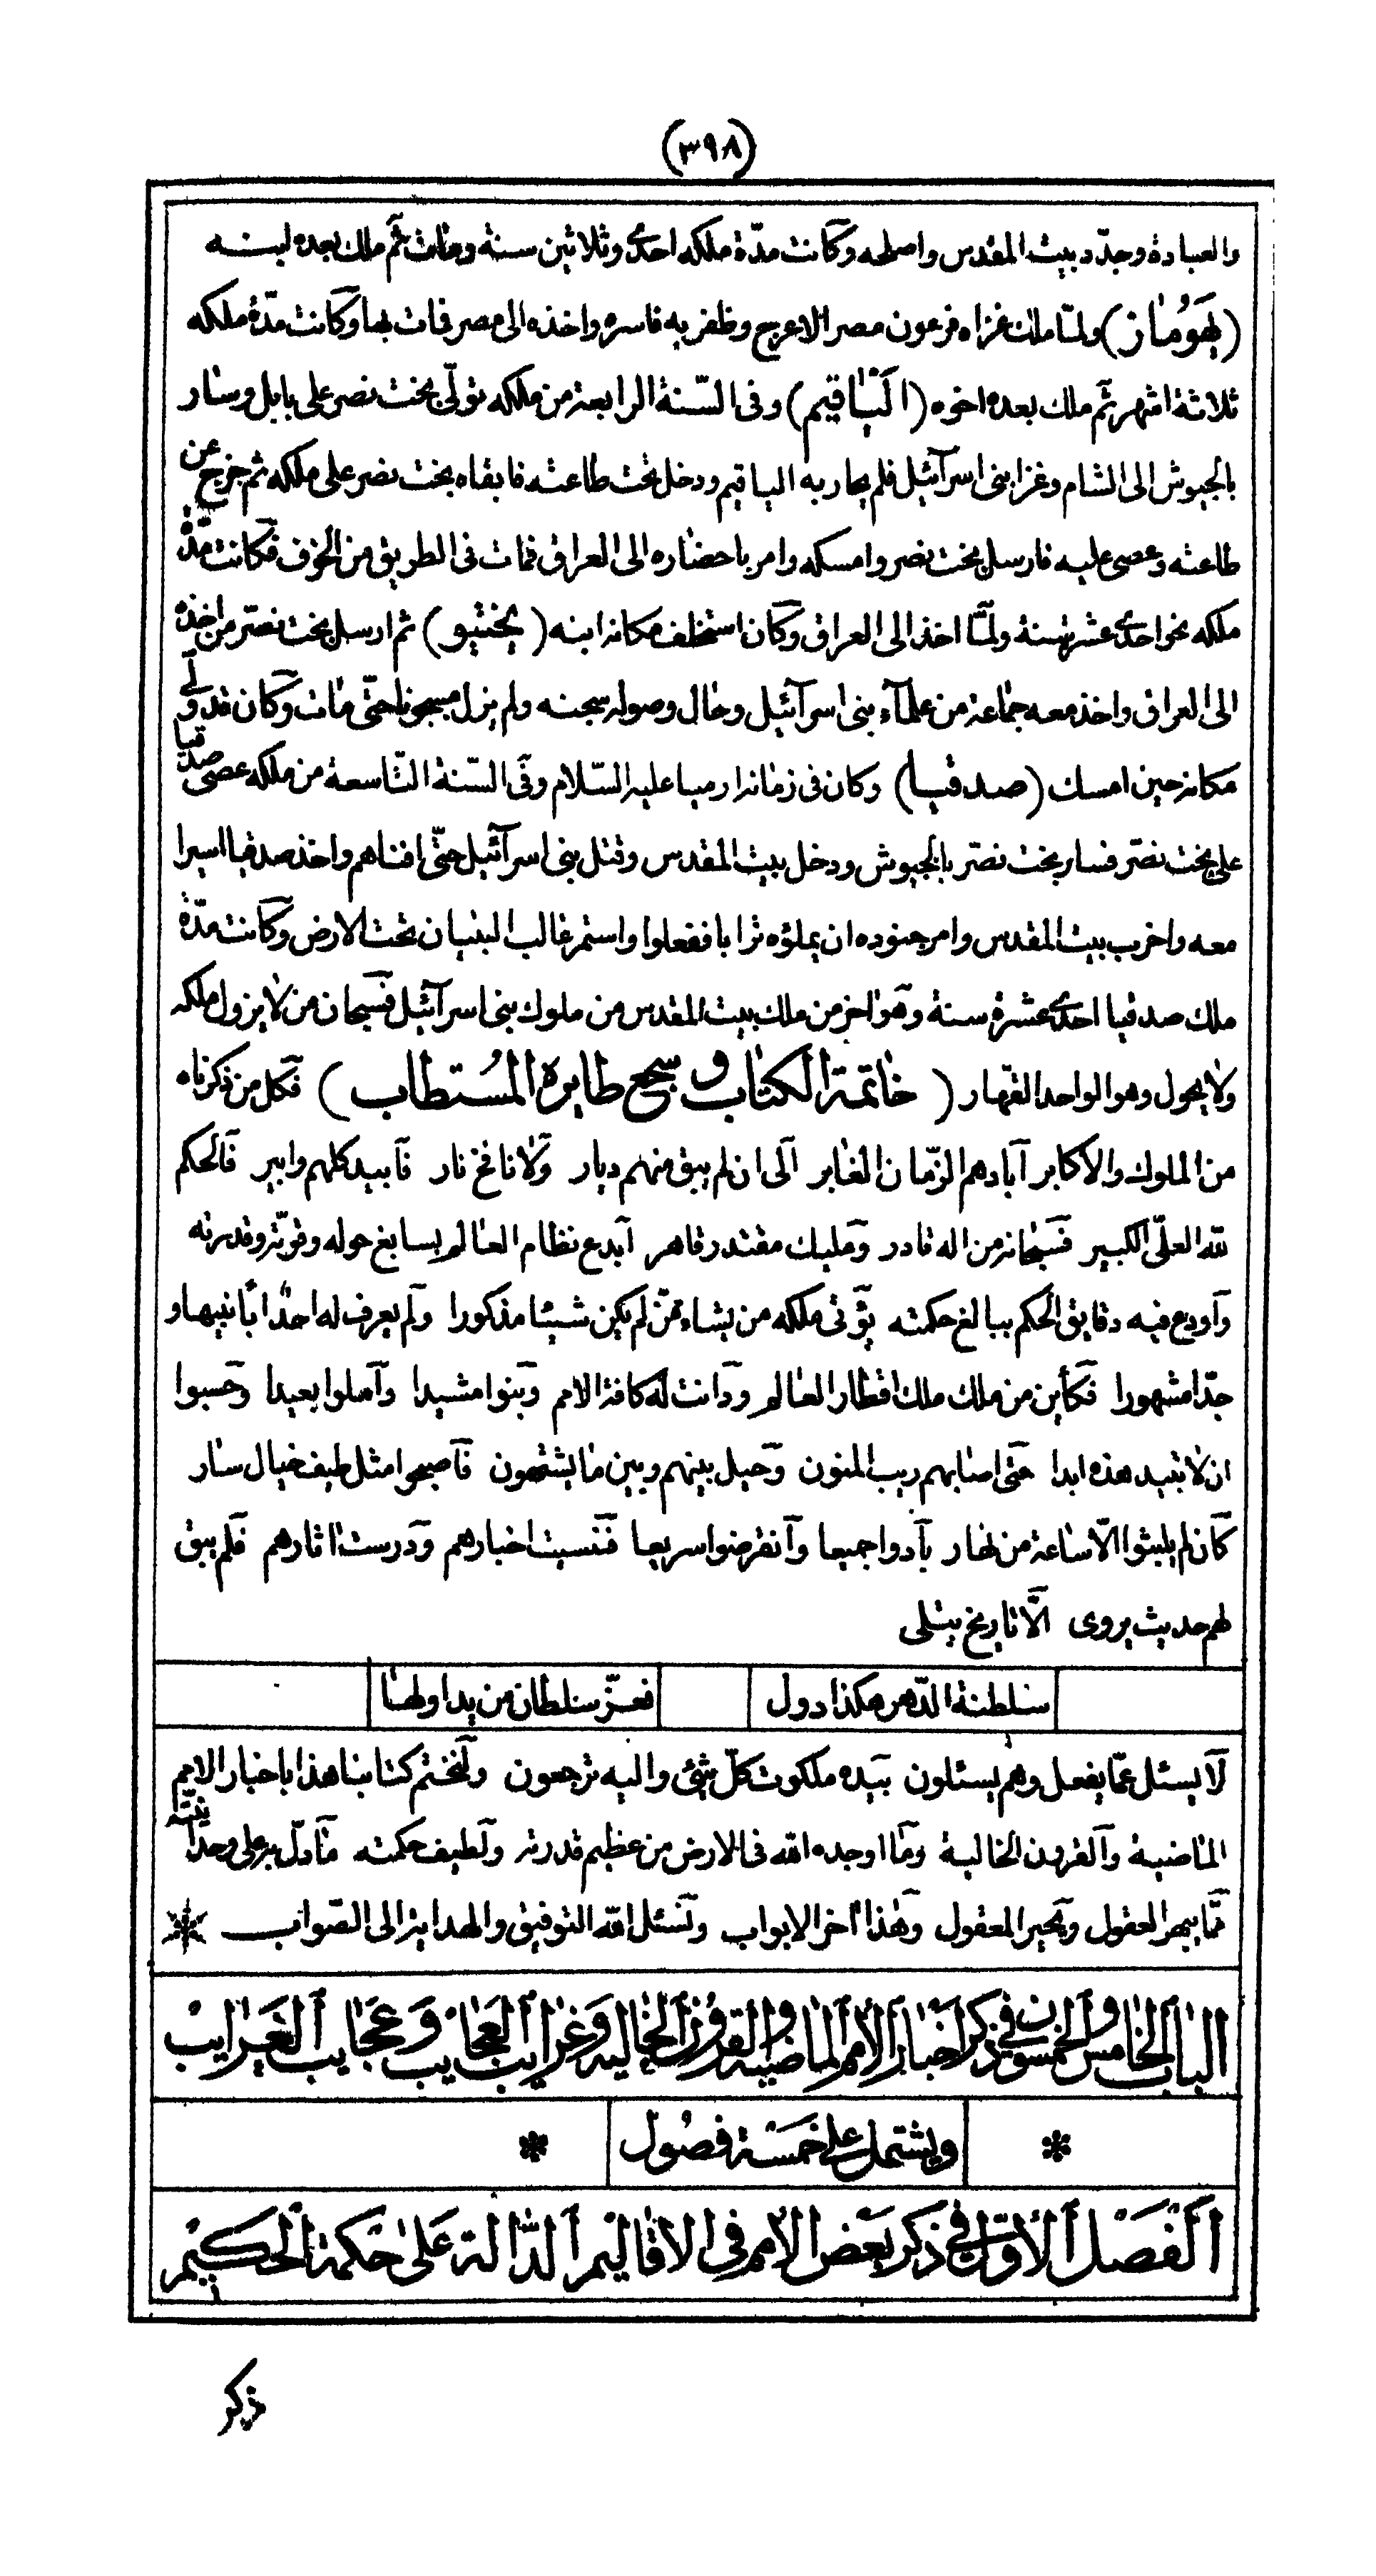 (٣٩٨)
والعبادة وجدّد بيت المقدس واصلحه وكانت مدّة ملكه احدى وثلاثين سنة ومات ثم ملك بعده ابنه
(يهوماز) ولمّا ملك غزاه فرعون مصر الاعرج وظفر به فاسره واخذه الى مصر فمات بها وكانت مدّة ملكه
ثلاثة اشهر ثم ملك بعده اخوه (الياقيم) وفى السّنة الرابعة من ملكه تولّى بخت نصر على بابل وسار
بالجيوش الى الشام وغزا بنى اسرآئيل فلم يحاربه الياقيم ودخل تحت طاعته فابقاه بخت نصر على ملكه ثم خرج عن
طاعته وعصى عليه فارسل بخت نصر وامسكه وامر باحضاره الى العراق فمات فى الطريق من الخوف فكانت مدّة
ملكه نحو احدى عشر سنة ولمّا اخذ الى العراق وكان استخلف مكانه ابنه (يخنيو) ثم ارسل بخت نصّر من اخذه
الى العراق واخذ معه جماعة من علمآء بنى اسرآئيل وحال وصوله سجنه ولم يزل مسجونا حتّى مات وكان قد ولّى
مكانه حين امسك (صدقيا) وكان فى زمانه ارميا عليه السّلام وفى السّنة التّاسعة من ملكه عصى صدقيا
على بخت نصّر فسار بخت نصّر بالجيوش ودخل بيت المقدس وقتل بنى اسرآئيل حتّى افناهم واخذ صدقيا اسيرا
معه واخرب بيت المقدس وامر جنوده ان يملؤه ترابا ففعلوا واستمر غالب البنيان تحت الارض وكانت مدّة
ملك صدقيا احدى عشرة سنة وهو اخر من ملك بيت المقدس من ملوك بنى اسرآئيل فسبحان من لا يزول ملكه
ولا يحول وهو الواحد القهّار (خاتمة الكتاب وسجع طايره المستطاب) فكل من ذكرناه
من الملوك والاكابر آبادهم الزّمان الغابر الى ان لم يبق منهم ديار ولا نافخ نار فآبيد كلهم وابير فالحكم
لله العلىّ الكبير فسبحانه من اله قادر ومليك مقتدر قاهر آبدع نظام العالم بسابغ حوله وقوّته وقدرته
وآودع فيه دقايق الحكم ببالغ حكمته يؤتى ملكه من يشاء ممّن لم يكن شيئا مذكورا ولم يعرف له احدا بأ نبيها و
جدّا مشهورا فكأين من ملك ملك اقطار العالم ودانت له كافة الامم وبنوا مشيدا وآملوا بعيدا وحسبوا
ان لا تبيد هذه ابدا حتى اصابهم ريب المنون وحيل بينهم وبين ما يشتهون فاصبحوا مثل طيف خيال سار
كان لم يلبثوا الاّ ساعة من نهار بآدوا جميعا وآنقرضوا سريعا فنسيت اخبارهم ودرست اثارهم فلم يبق
لهم حديث يروى الاّ تاريخ يتلى
سلطنة الدّهر هكذا دول فعزّ سلطان من يداولها
لا يسئل عمّا يفعل وهم يسئلون بيده ملكوت كلّ شئ واليه ترجعون ولنختم كتابنا هذا باخبار الامم
الماضية وآلقرون الخالية وما اوجده الله فى الارض من عظيم قدرته ولطيف حكمته مادلّ به على وحدانيّته
ممّا يبهر العقول ويحير المعقول وهذا آخر الابواب ونسئل الله التوفيق والهداية الى الصّواب
الباب الخامس والخمسون فى ذكر اخبار الامم الماضية والقرون الخالية وغرايب العجايب وعجايب الغرايب
ويشتمل على خمسة فصول
الفصل الاوّل فى ذكر بعض الامم فى الاقاليم الدّالة على حكمة الحكيم
ذكر